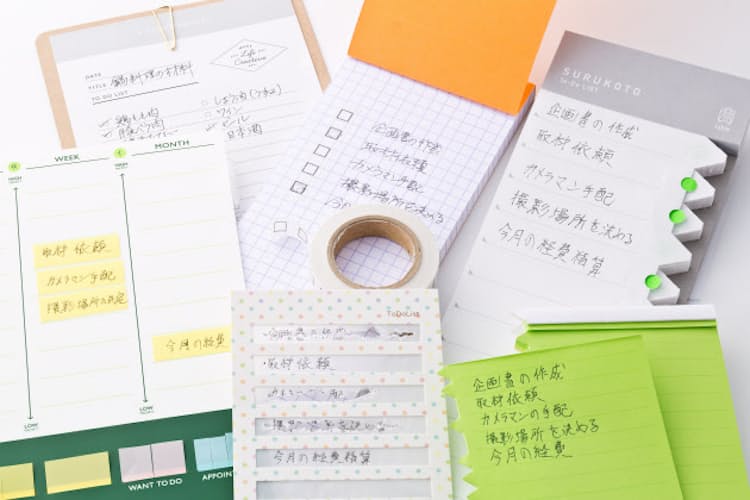 DATE
TITLE 鍋料理の材料
TO DO LIST
Life
Creations
ワイン
ビール
日本酒
企画書の作成
カメラマン手配
撮影場所を決める
SURUKOTO
TO-DO LIST
企画書の作成
取材依頼
カメラマン手配
撮影場所を決める
今月の経費積算
WEEK
MONTH
HIGH
HIGH
取材依頼
カメラマン手配
撮影場所の決定
今月の経費
LOW
LOW
WANT TO DO
APPOINT
ToDoList
・企画書の作成
・取材依頼
・カメラマン手配
・撮影場所を決める
・今月の経費積算
企画書の作成
取材依頼
カメラマンの手配
撮影場所を決める
今月の経費